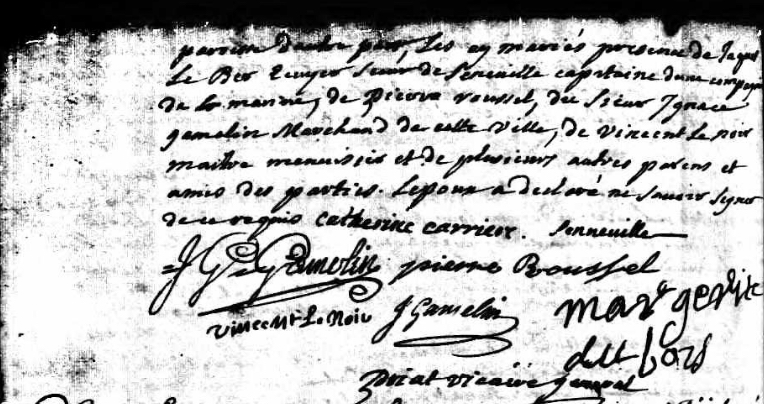 paroisse d'autre part, Les ay mariés presence de Jaque
Le Ber Ecuyer sieur de senneville capitaine dune compagni
de la marine, de Pierre roussel, du sieur Ignace
gamelin Marchand de cette Ville, de Vincent Le noir
maitre menuisier et de plusieurs autres parens et
amis des parties. Lepoux a declaré ne savoir signer
de ce requis catherine carrier. Senneville
J G Gamelin pierre Roussel
vincent Le Noir J Gamelin margerite
du bois
Priat vicaire general